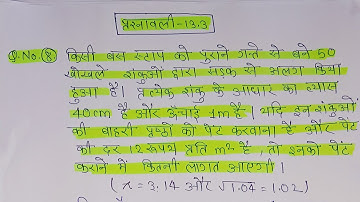 प्रश्नावली-13.3
Q.No.(8) किसी बस स्टाप को पुराने गत्ते से बने 50
खोखले शंकुओं द्वारा सड़क से अलग किया
हुआ है। प्रत्येक शंकु के आधार का व्यास
40cm है और ऊँचाई 1m है। यदि इन शंकुओं
की बाहरी पृष्ठों को पेंट करवाना है और पेंट
की दर 12 रुपये प्रति m² है, तो इनको पेंट
कराने में कितनी लागत आएगी।
(π = 3.14 और √1.04 = 1.02)